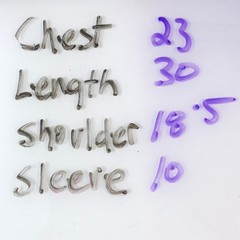 Chest 23
Length 30
Shoulder 18.5
Sleeve 10